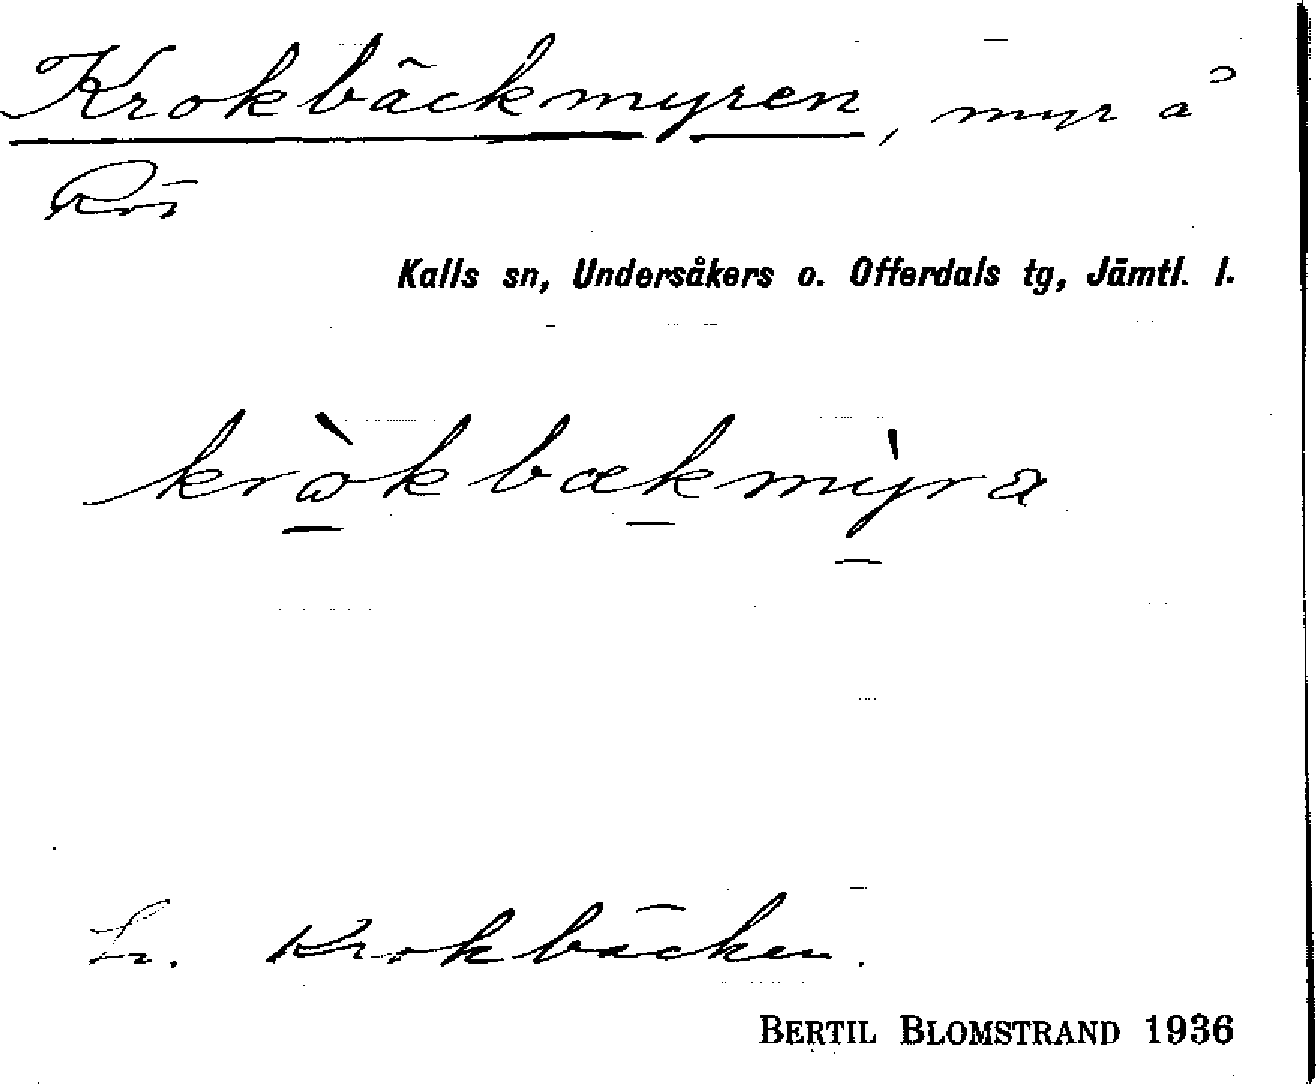 Krokbäckmyren, myr å
Rö
Kalls sn, Undersåkers o. Offerdals tg, Jämtl. l.
kròkbækmỳra
Se. Krokbäcken.
BERTIL BLOMSTRAND 1936